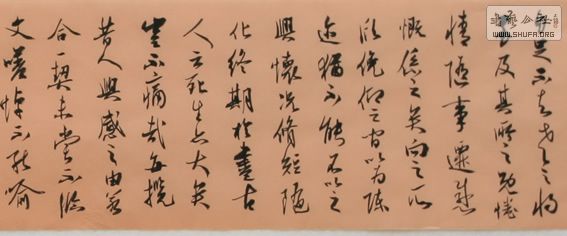 自足不知老之將
至及其所之既惓
情隨事遷感
慨係之矣向之所
欣俛仰之間以為陳
迹猶不能不以之
興懷況脩短隨
化終期於盡古
人云死生亦大矣
豈不痛哉每攬
昔人興感之由若
合一契未嘗不臨
文嗟悼不能喻
WWW.SHUFA.ORG